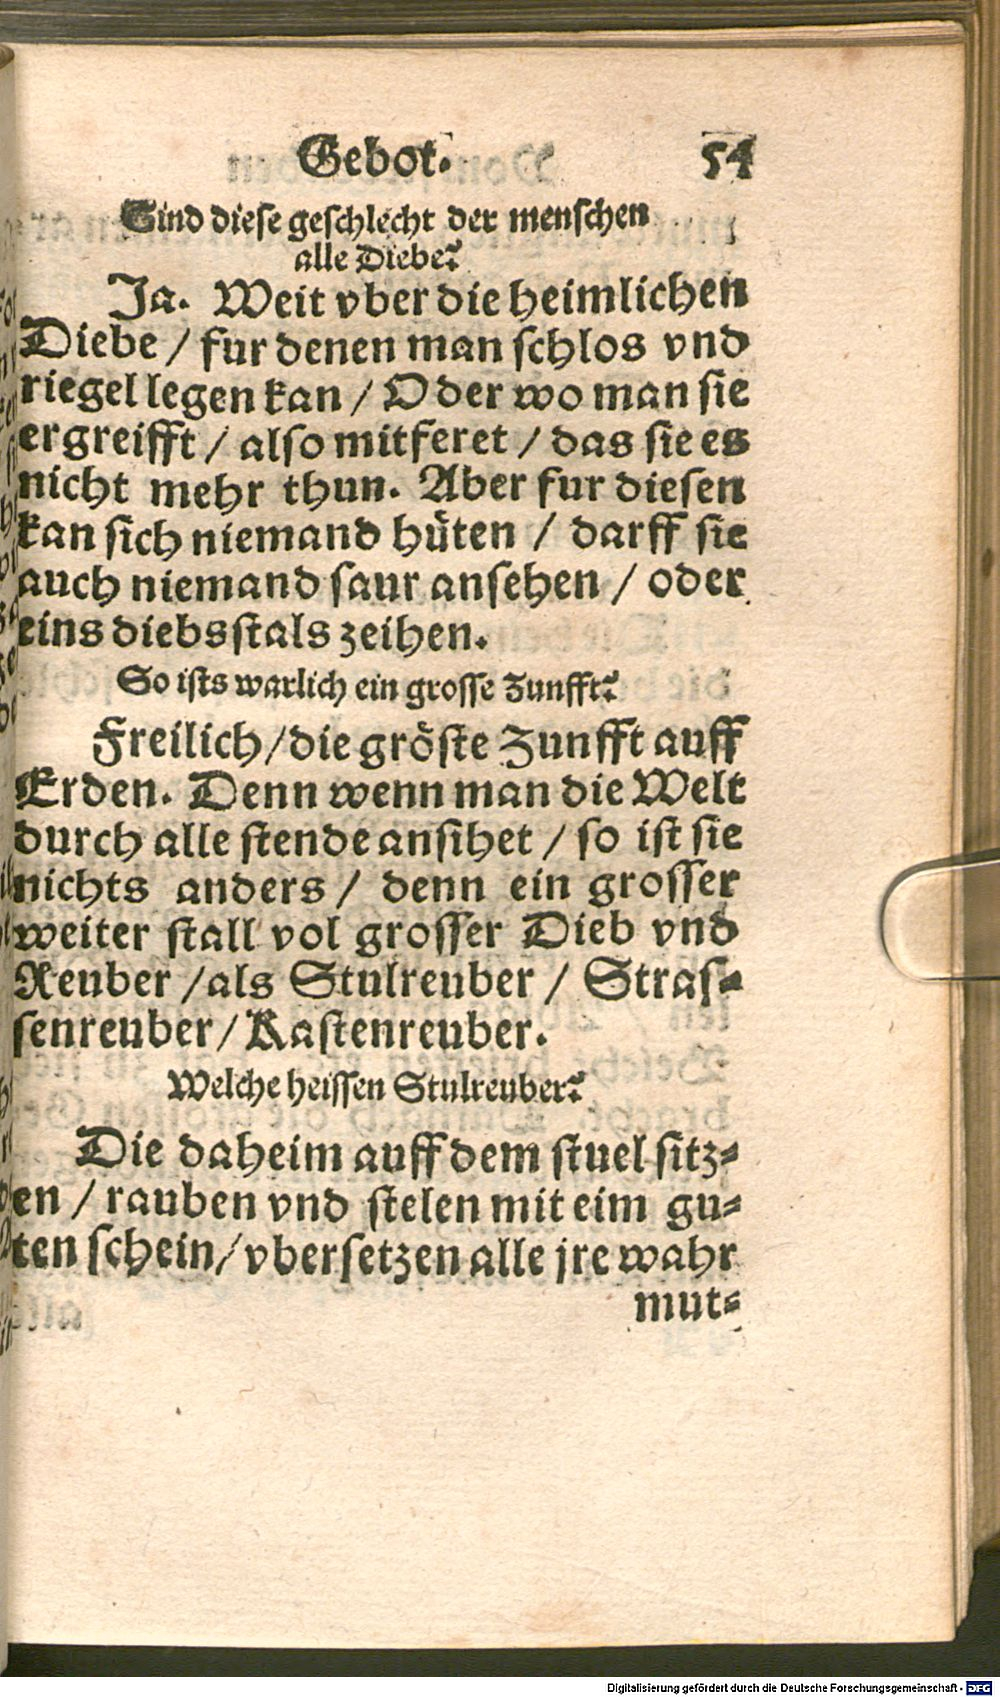 Gebot. 54
Sind diese geschlecht der menschen
alle Diebe?
Ja. Weit vber die heimlichen
Diebe / fur denen man schlos vnd
riegel legen kan / Oder wo man sie
ergreifft / also mitferet / das sie es
nicht mehr thun. Aber fur diesen
kan sich niemand hüten / darff sie
auch niemand saur ansehen / oder
eins diebsstals zeihen.
So ists warlich ein grosse Zunfft?
Freilich / die gröste Zunfft auff
Erden. Denn wenn man die Welt
durch alle stende ansihet / so ist sie
nichts anders / denn ein grosser
weiter stall vol grosser Dieb vnd
Reuber / als Stulreuber / Stras-
senreuber / Kastenreuber.
Welche heissen Stulreuber?
Die daheim auff dem stuel sitz-
en / rauben vnd stelen mit eim gu-
ten schein / vbersetzen alle jre wahr
mut-
Digitalisierung gefördert durch die Deutsche Forschungsgemeinschaft - DFG